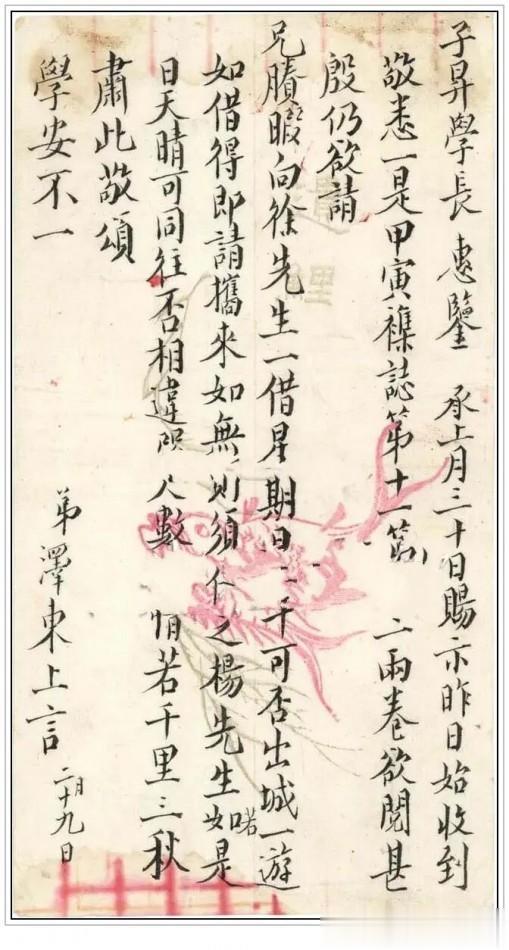 子昇學長 惠鑒 承上月三十日賜示昨日始收到
敬悉一是甲寅襍誌第十一第 二兩卷欲閱甚
殷仍欲請
兄賸暇向徐先生一借星期日 午可否出城一遊
如借得即請攜來如無則須 之楊先生如是
日天晴可同往否相違咫尺數 情若千里三秋
肅此敬頌
學安不一
弟澤東上言
二月十九日